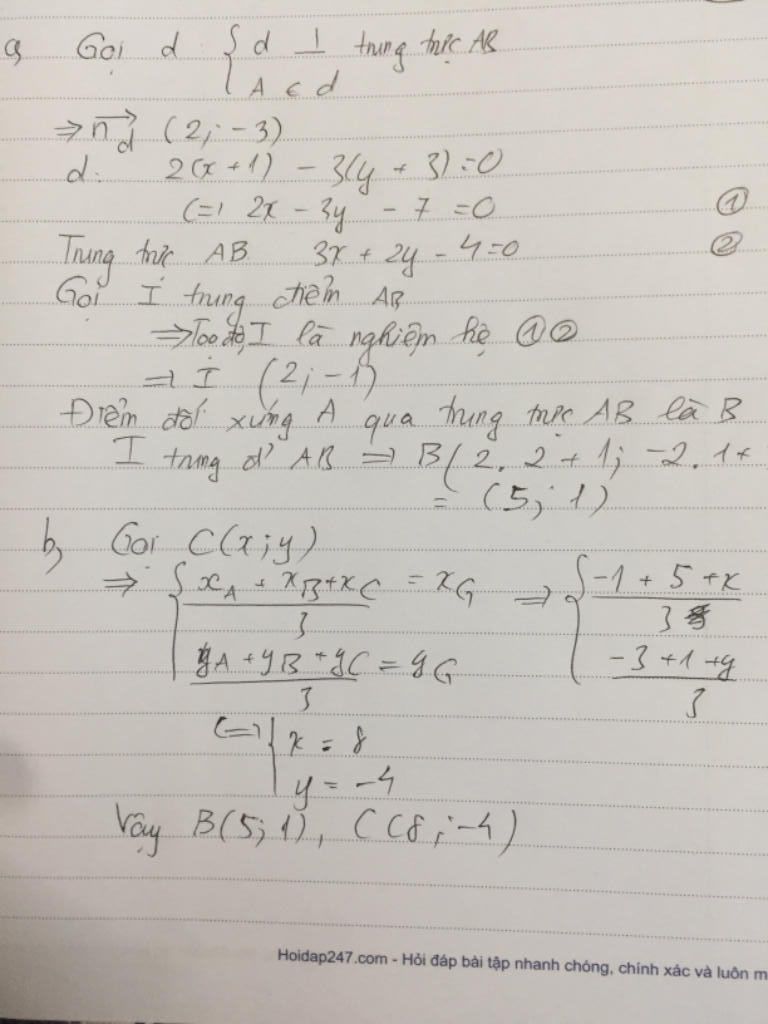 a, Gọi d { d ⊥ trung trực AB
A ∈ d
⇒ n_d→ (2; -3)
d: 2(x + 1) - 3(y + 3) = 0
(=) 2x - 3y - 7 = 0 ①
Trung trực AB 3x + 2y - 4 = 0 ②
Gọi I trung điểm AB
⇒ Toạ độ I là nghiệm hệ ①②
⇒ I (2; -1)
Điểm đối xứng A qua trung trực AB là B
I trung đ' AB ⇒ B(2. 2 + 1; -2. 1 +
= (5; 1)
b, Gọi C(x; y)
⇒ { (x_A + x_B + x_C)/3 = x_G ⇒ { (-1 + 5 + x)/3
(y_A + y_B + y_C)/3 = y_G (-3 + 1 + y)/3
(=) { x = 8
y = -4
Vậy B(5; 1), C(8; -4)
Hoidap247.com - Hỏi đáp bài tập nhanh chóng, chính xác và luôn m